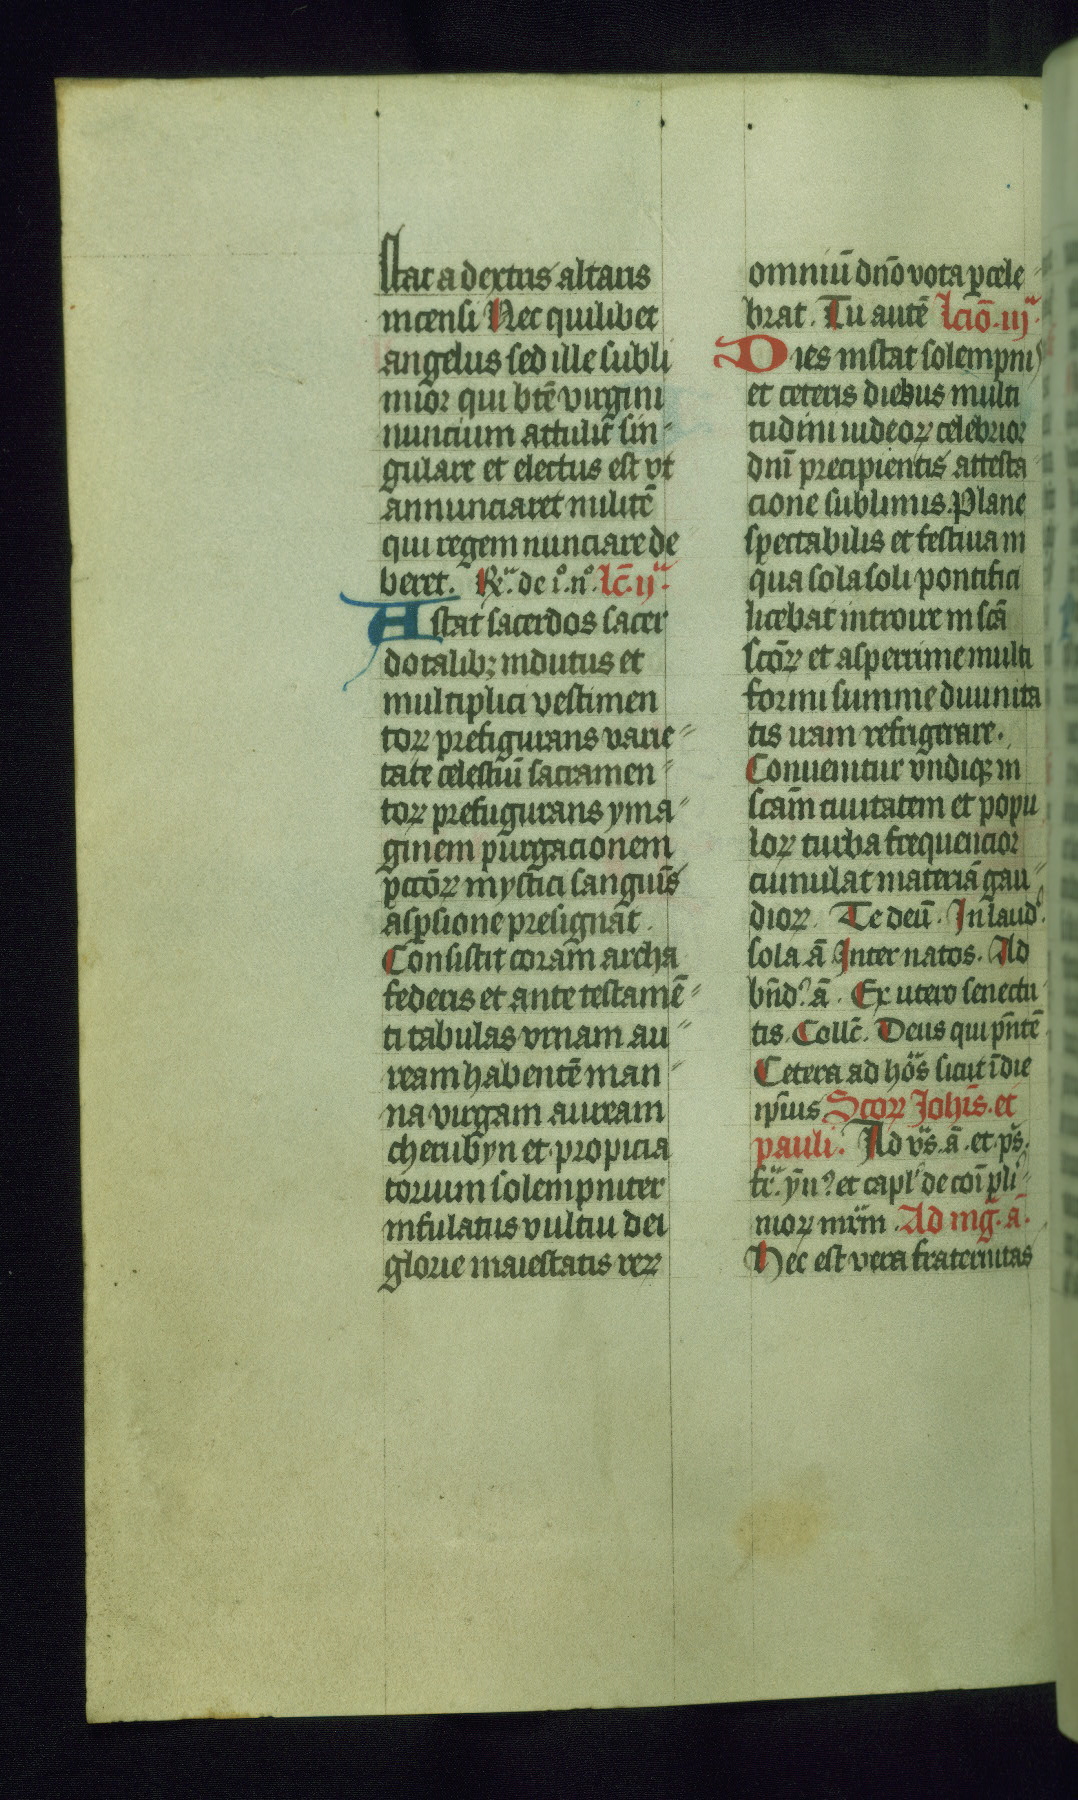 Stat a dextris altaris
incensi Nec quilibet
angelus sed ille subli
mior qui btē virgini
nuncium attulit̄ sin-
gulare et electus est vt
annunciaret militē
qui regem nunciare de
beret. Rͬ. de i.º n.º lc̄. ij.ª
Astat sacerdos sacer
dotalibꝫ indutus et
multiplici vestimen
toꝝ prefigurans varie-
tate celestiū sacramen-
toꝝ prefugurans yma-
ginem purgacionem
pctōꝝ mystici sanguis̄
asꝑsione presignāt.
Consistit coram archa
federis et ante testamē-
ti tabulas vrnam au-
ream habentē man-
na virgam auream
cherubyn et propicia
torium solempniter
infulatus vultui dei
glorie maiestatis reꝝ
omniū dn̄o vota ꝑcele-
brat. Tu autē lciō. iij.ª
Dies instat solempnis
et ceteris diebus multi
tudini iudeoꝝ celebrior
dn̄i precipientis attesta-
cione sublimis. Plane
spectabilis et festiua in
qua sola soli pontifici
licebat introire in scā
scōꝝ et asperrime multi
formi summe diuinita
tis iram refrigerare.
Conuenitur vndiqꝫ in
scam̄ ciuitatem et popu
loꝝ turba frequencior
cumulat materiā gau-
dioꝝ. Te deū. In laud.
sola ā Inter natos. Ad
bn̄d.ˢ ā. Ex utero senectu
tis. Collc̄. Deus qui pn̄tē
Cetera ad hōs sicut ī die
ip̄ius Scoꝝ Joh̄is. et
pauli. Ad vs̄. ā. et ps̄.
fr̄. yn̄.ˢ et capl̓ de coī pli-
moꝝ mr̄m. Ad mḡ. ā.
Hec est vera fraternitas